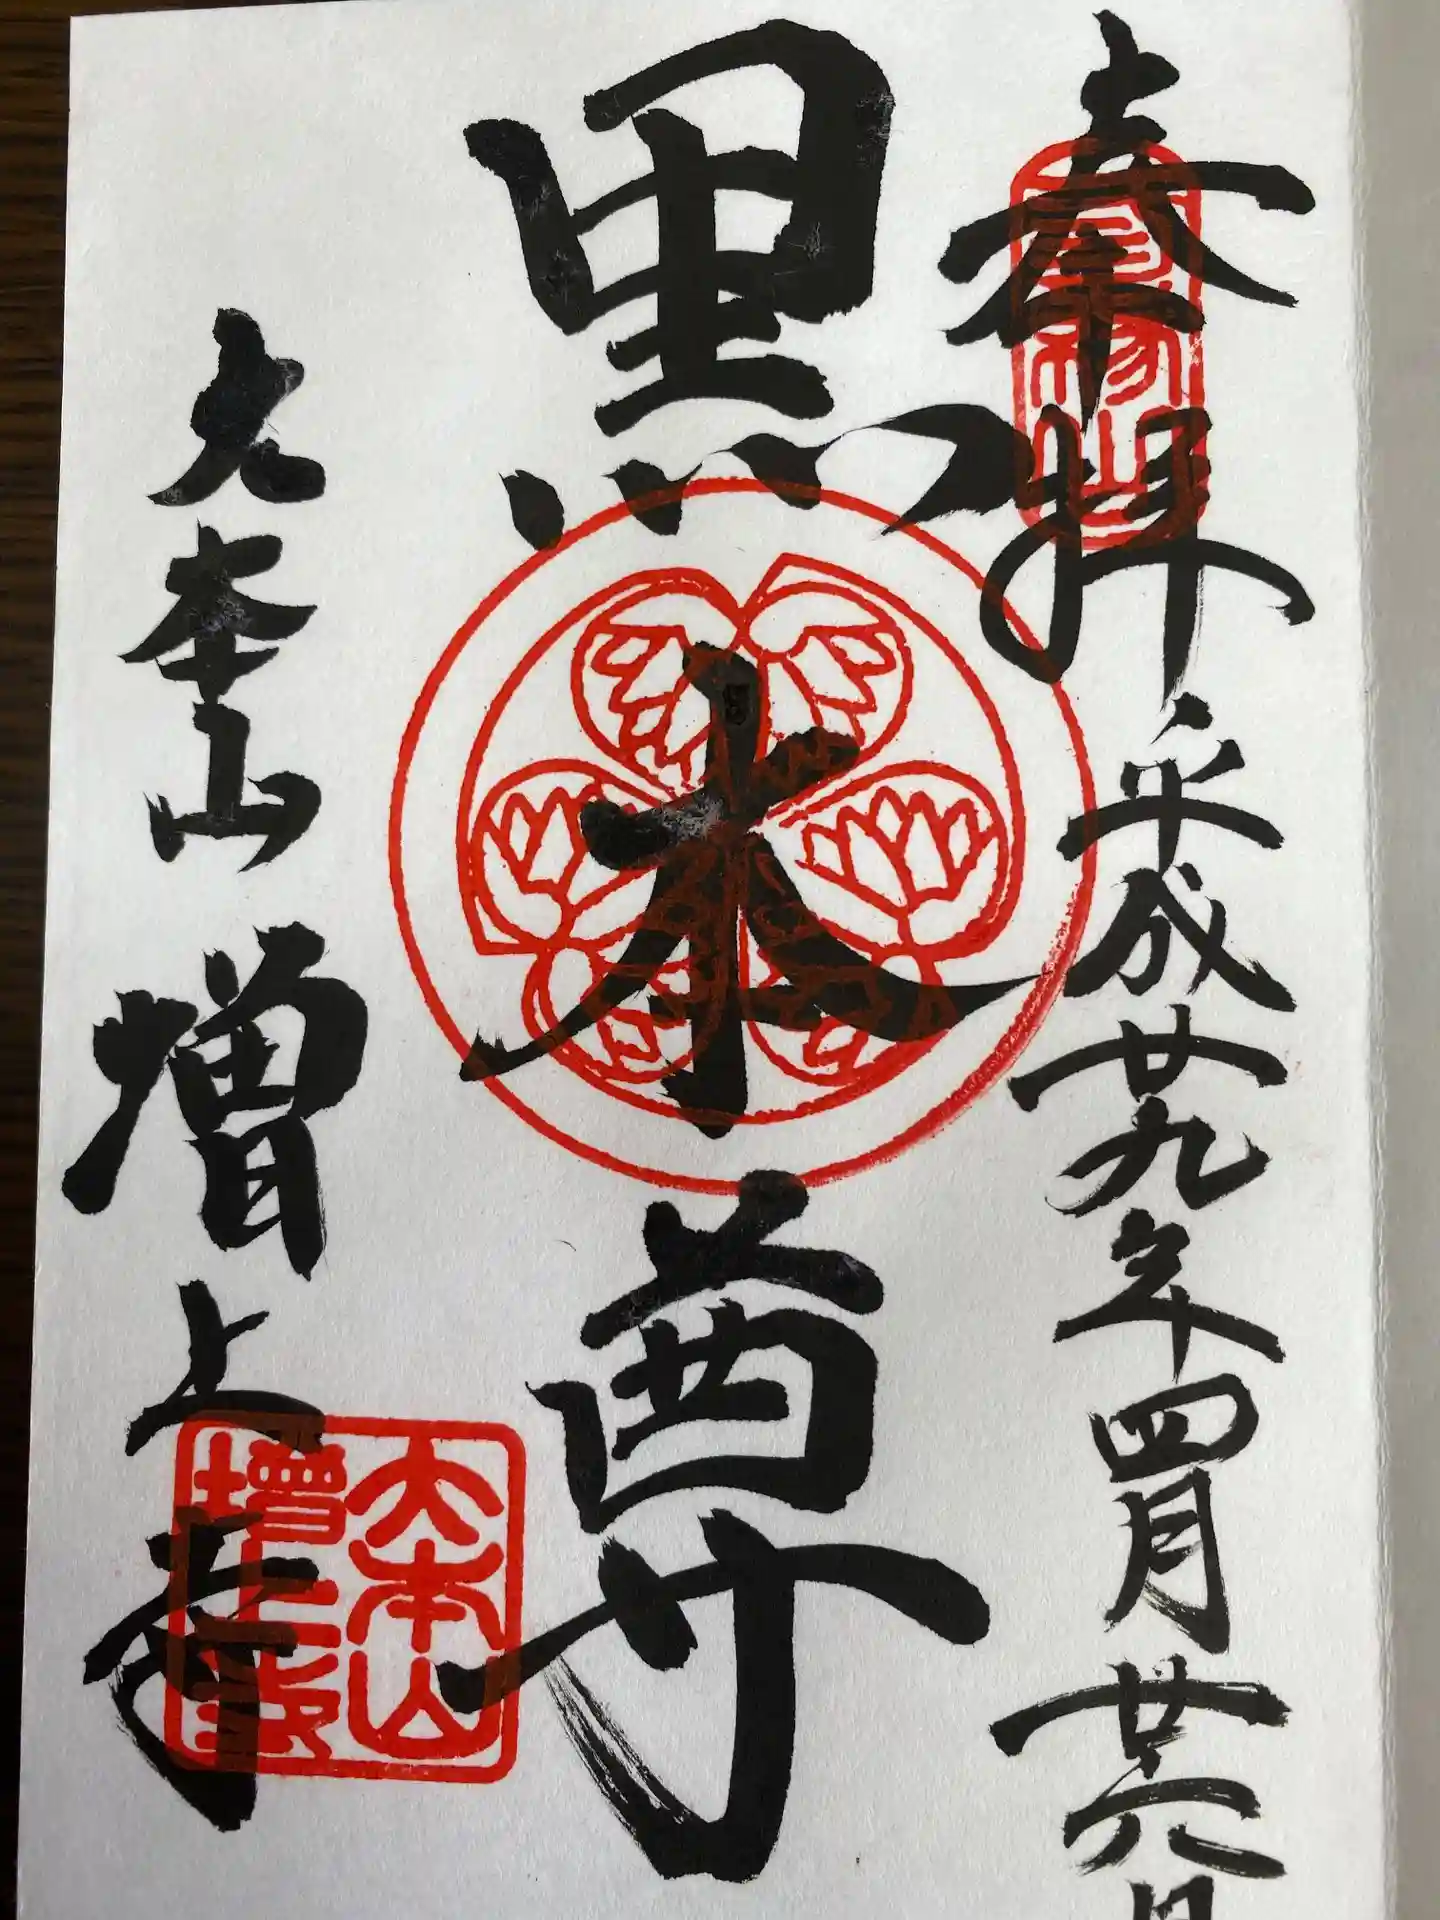 奉拝
平成廿九年四月廿六日
黒本尊
大本山増上寺
大本山
増上寺